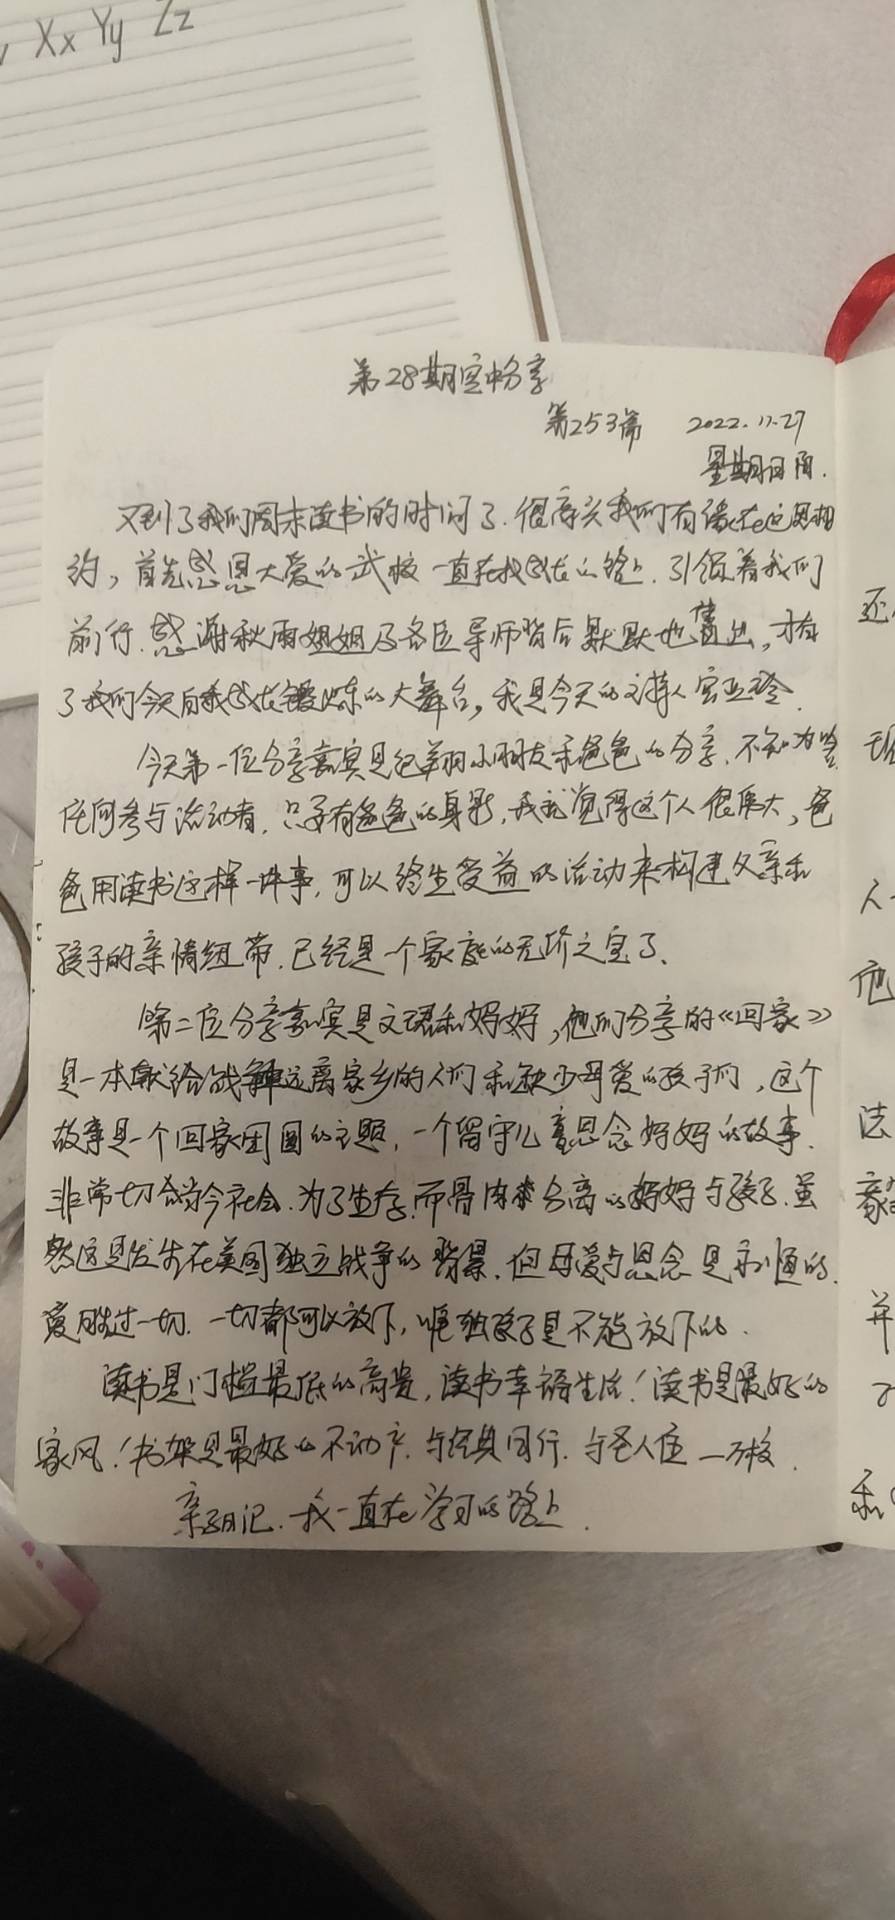 Xx Yy Zz
第28期空中分享
第253篇 2022.11.27
星期日 阴.
又到了我们周末读书的时间了.很高兴我们有缘在这里相
约,首先感恩大爱的武校一直在找我的路上.引领着我们
前行.感谢秋雨姐姐及各位导师背后默默地付出,才有
了我们今天自我成长锻炼的大舞台,我是今天的主持人
今天第一位分享嘉宾是翔小朋友和爸爸的分享.不知为啥
任何参与活动者,只要有爸爸的身影,我就觉得这个人很伟大,爸
爸用读书这样一件事,可以终生受益的活动来构建父亲和
孩子的亲情纽带.已经是一个家庭的无价之宝了.
第二位分享嘉宾是文珺和妈妈,他们分享的《回家》
是一本献给战争远离家乡的人们和缺少母爱的孩子们,这个
故事是一个回家团圆的主题,一个留守儿童思念妈妈的故事.
非常切合当今社会.为了生存.而骨肉分离的妈妈与孩子.虽
然这是发生在美国独立战争的背景.但母爱与思念是永恒的.
爱胜过一切.一切都可以放下,唯独孩子是不能放下的.
读书是门槛最低的高贵,读书幸福生活!读书是最好的
家风!书架是最好的不动产.与经典同行.与圣人
亲子日记.我一直在学习的路上.